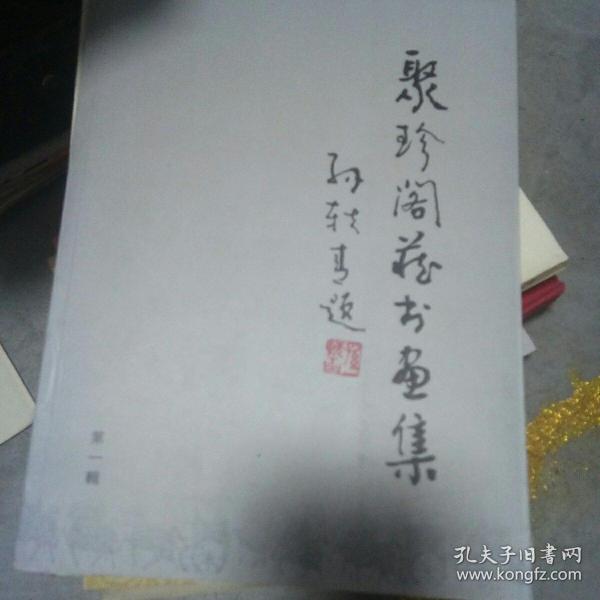 聚珍阁藏书画集
孙轶青题
第一輯
孔夫子旧书网
www.kongfz.com